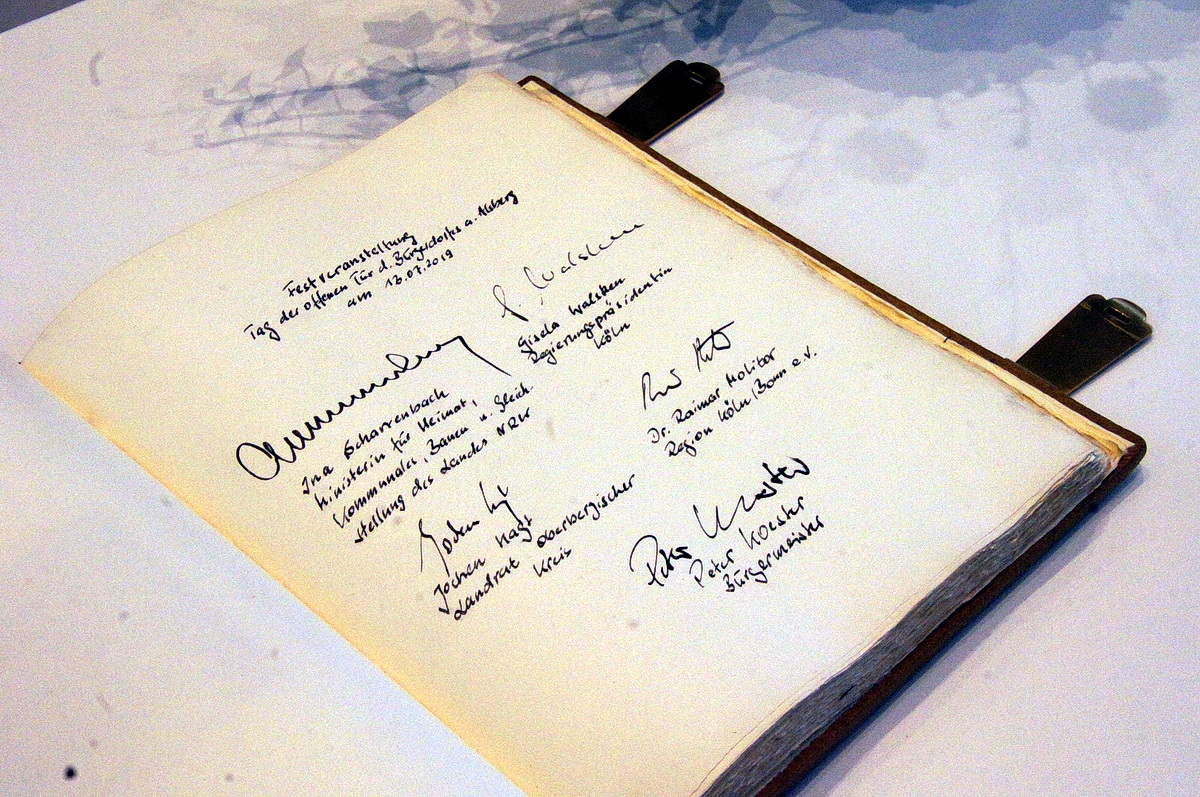 Festveranstaltung
Tag der offenen Tür d. Bürgerdorfes a. Alsberg
am 13.07.2019
Ina Scharrenbach
Ministerin für Heimat,
Kommunales, Bauen u. Gleich-
stellung des Landes NRW
G. Walsken
Gisela Walsken
Regierungspräsidentin
Köln
Dr. Raimar Molitor
Region Köln/Bonn e.V.
Jochen Hagt
Landrat Oberbergischer
Kreis
Peter Koester
Peter Koester
Bürgermeister